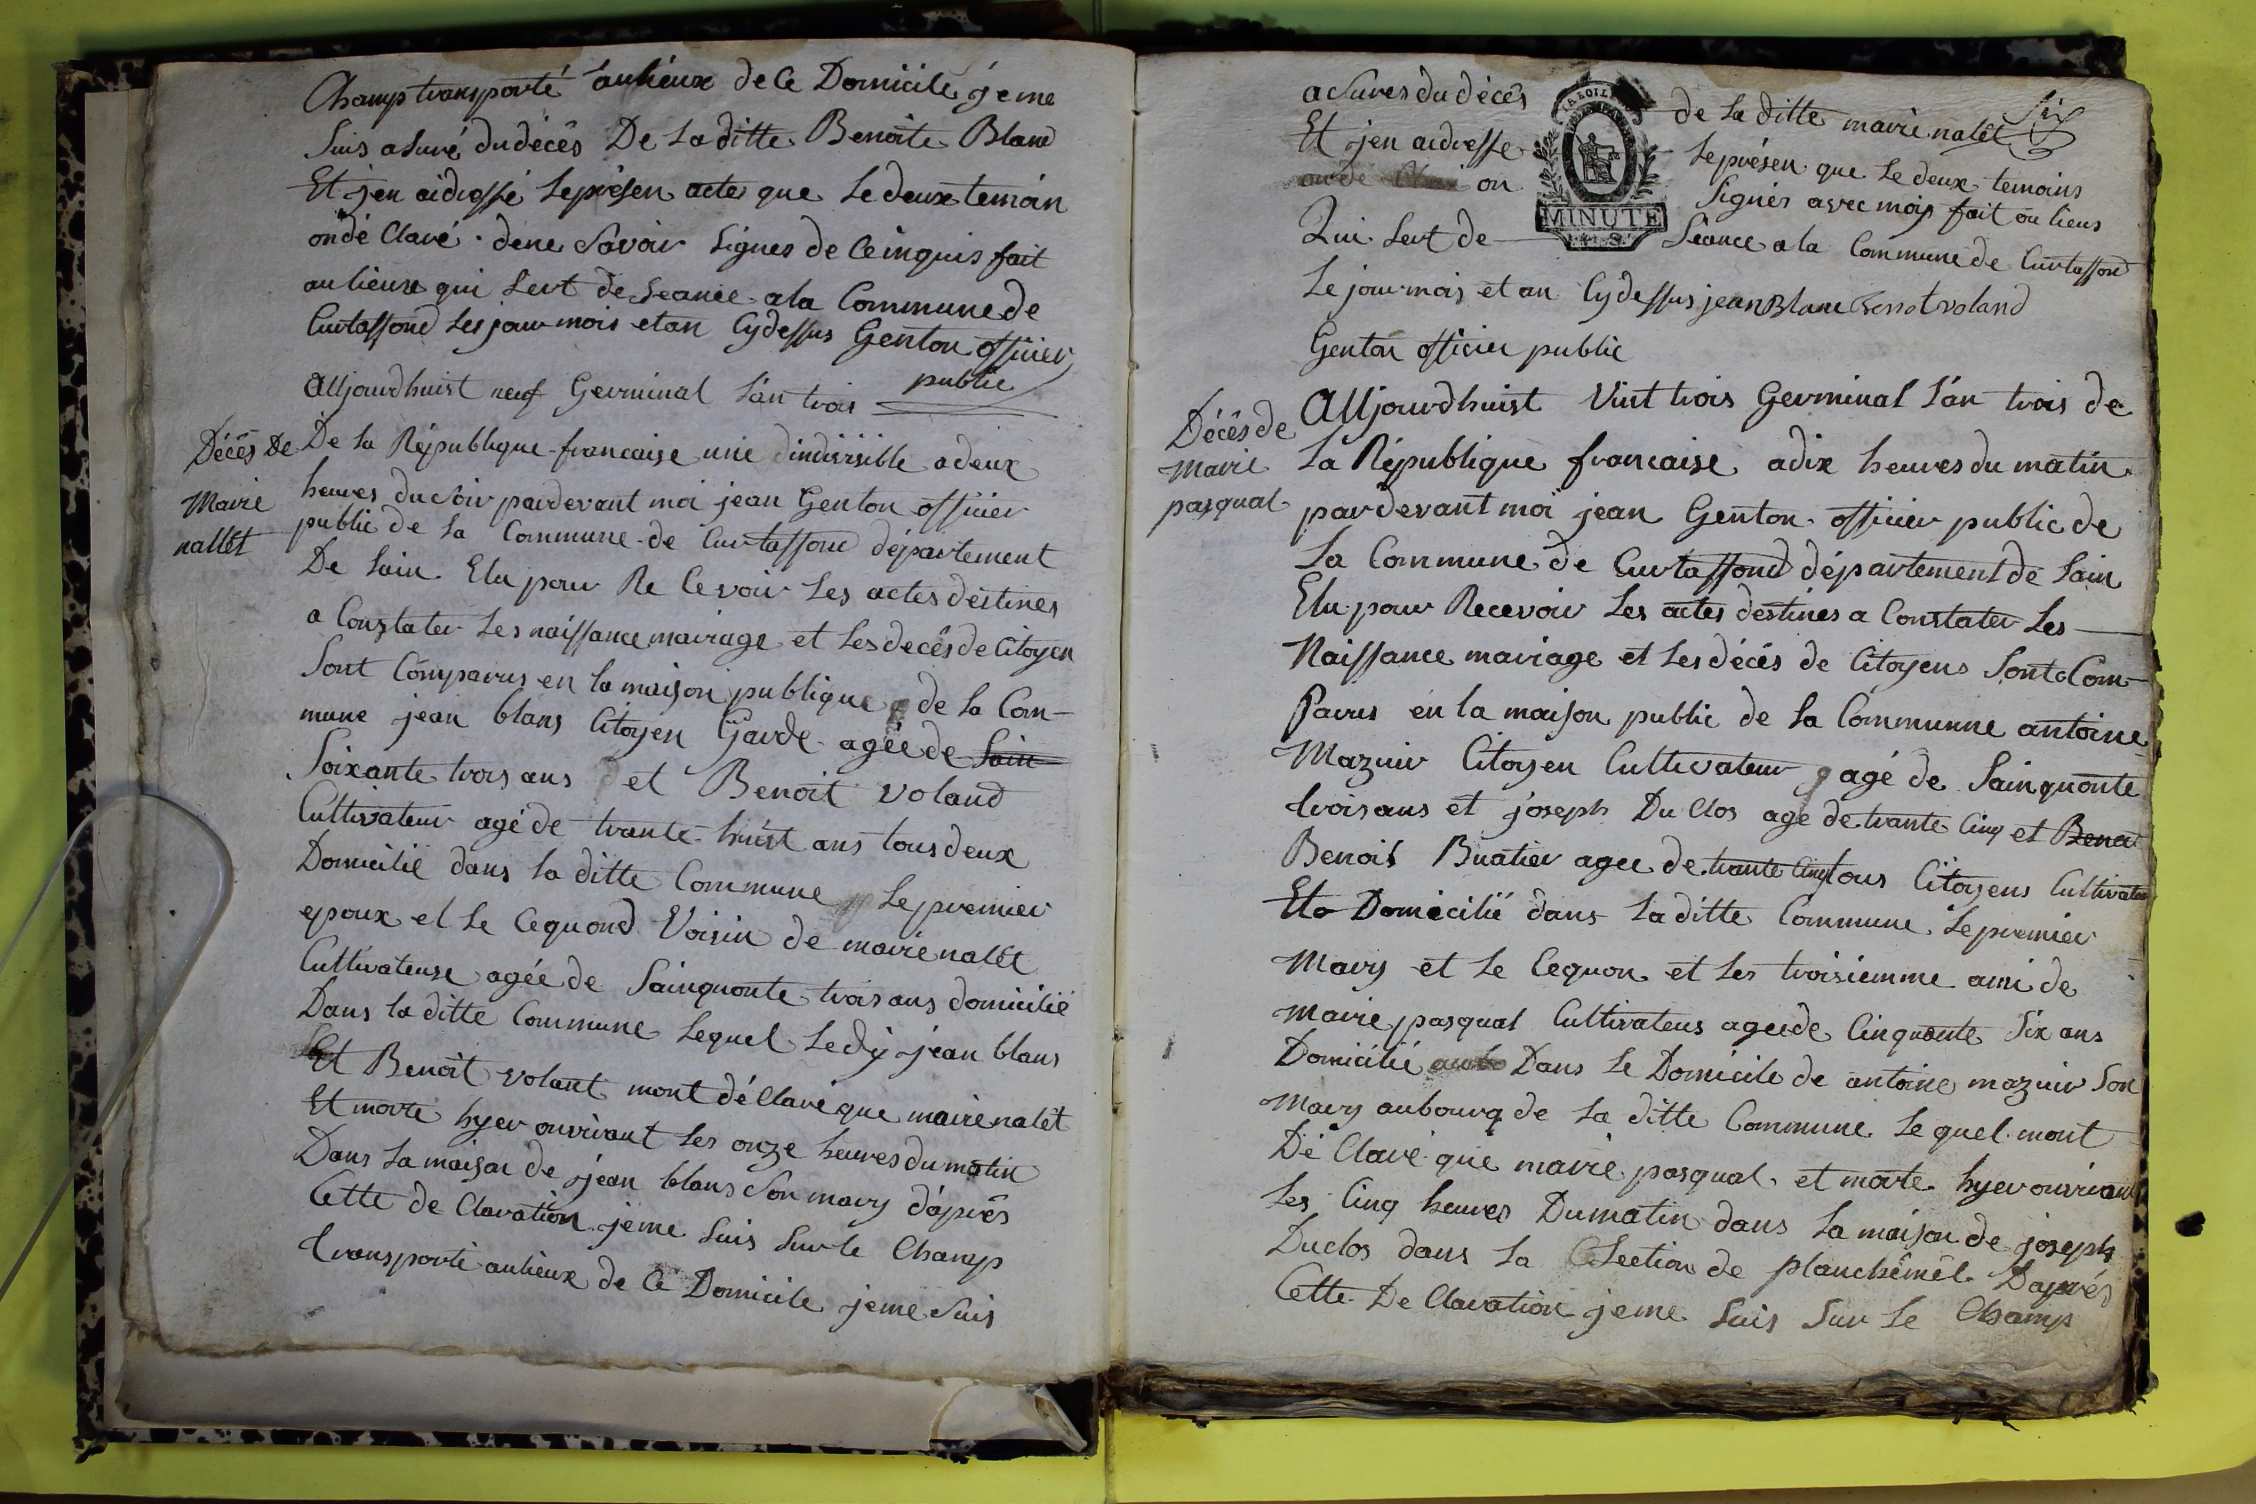 Champ transporté aulieux de Ce Domicile jeme
Suis asuré dudécês De La ditte Benoite Bland
Et jen aidressé Leprésen acte que Le deux temoin
ondé Claré dene Savoir Signes de Ceinquis fait
aulieux qui Sert de Seance ala Commune de
Curtaffond Les jour mois etan Cydessus Genton officier
public
Aujourdhuist neuf Germinal L'an trois
Décês De
Marie
nallêt
De La République francaise une dindivisible a deux
heures du Soir pardevant moi jean Genton officier
public de La Commune de Curtaffond département
De Lain Elu pour Re Cevoir Les actes destines
a Constater Les naissance mariage et Les decês de Citoyen
Sont Comparus en la maison publique de La Com-
mune jean blans Citoyen Garde agée de Sain
Soixante trois ans et Benoit voland
Cultivateur agé de trante-huist ans tous deux
Domicilié dans la ditte Commune Lepremier
epoux et Le Cequond Voisin de marie nalêt
Cultivateuse agée de Sainquonte trois ans domicilié
Dans la ditte Commune Lequel Ledy jean blans
Et Benoit volant mont déClaré que marie nalêt
Et morte hyer ouvirant Les onze heures du matin
Dans La maison de jean blans Son mary d'après
Cette de Claration jeme Suis Sur le Champ
transporté aulieux de Ce Domicile jeme Suis
Six
asures du décês de La ditte marie nalêt
Et jen aidresse Leprésen que Le deux temoins
on Signés avec mois fait ou lieus
MINUTE
Qui Sert de Séance a la Commune de Curtaffond
Le jour mois et an Cydessus jean Blanc voland
Genton officier public
Décês de
Marie
pasqual
Aujourdhuist Vint trois Germinal L'an trois de
La République francaise adix heures du matin
pardevant moi jean Genton officier public de
La Commune de Curtaffond département de Lain
Elu pour Recevoir Les actes destines a Constater Les
Naissance mariage et Les décês de Citoyens Sont Com-
Parus en la maison public de La Communne antoine
Mazuir Citoyen Cultivateur agé de Sainquonte
trois ans et joseph Du Clos age de trante Cinq et Benoit
Benois Buatier agee de trante Cinq tous Citoyens Cultivateur
Et Domicilié dans La ditte Commune Lepremier
Mary et Le Cequon et Les troisiemme ami de
Marie pasqual Cultivateus ageede Cinquonte Six ans
Domicilié Dans Le Domicile de antoine mazuir Son
Mary aubourq de La ditte Commune Lequel mont
Dé Claré que marie pasqual et morte hyer ouvriant
Les Cinq heures Dumatin dans La maison de joseph
Duclos dans La Section de planchêmêl Daprés
Cette De Claration jeme Suis Sur Le Champ